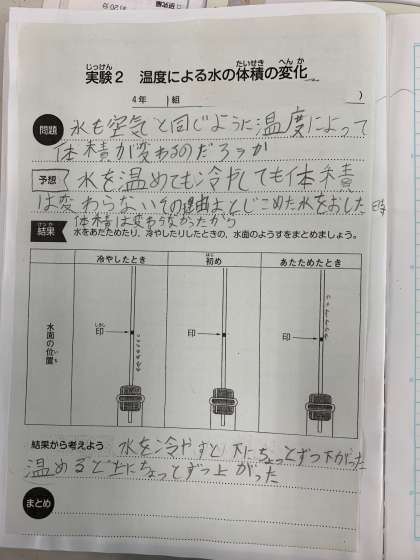 じっけん たいせき へんか
実験2 温度による水の体積の変化
4年 組 )
問題 水も空気と同じように温度によって
体積が変わるのだろうか
予想 水を温めても冷やしても体積
は変わらないその理由はとじこめた水をおした時
体積は変わらなかったから
けっか
結果 水をあたためたり、冷やしたりしたときの、水面のようすをまとめましょう。
冷やしたとき 初め あたためたとき
はじ
水面の位置
いち
しるし
印 印 印
結果から考えよう 水を冷やすと下にちょっとずつ下がった
温めると上にちょっとずつ上がった
まとめ